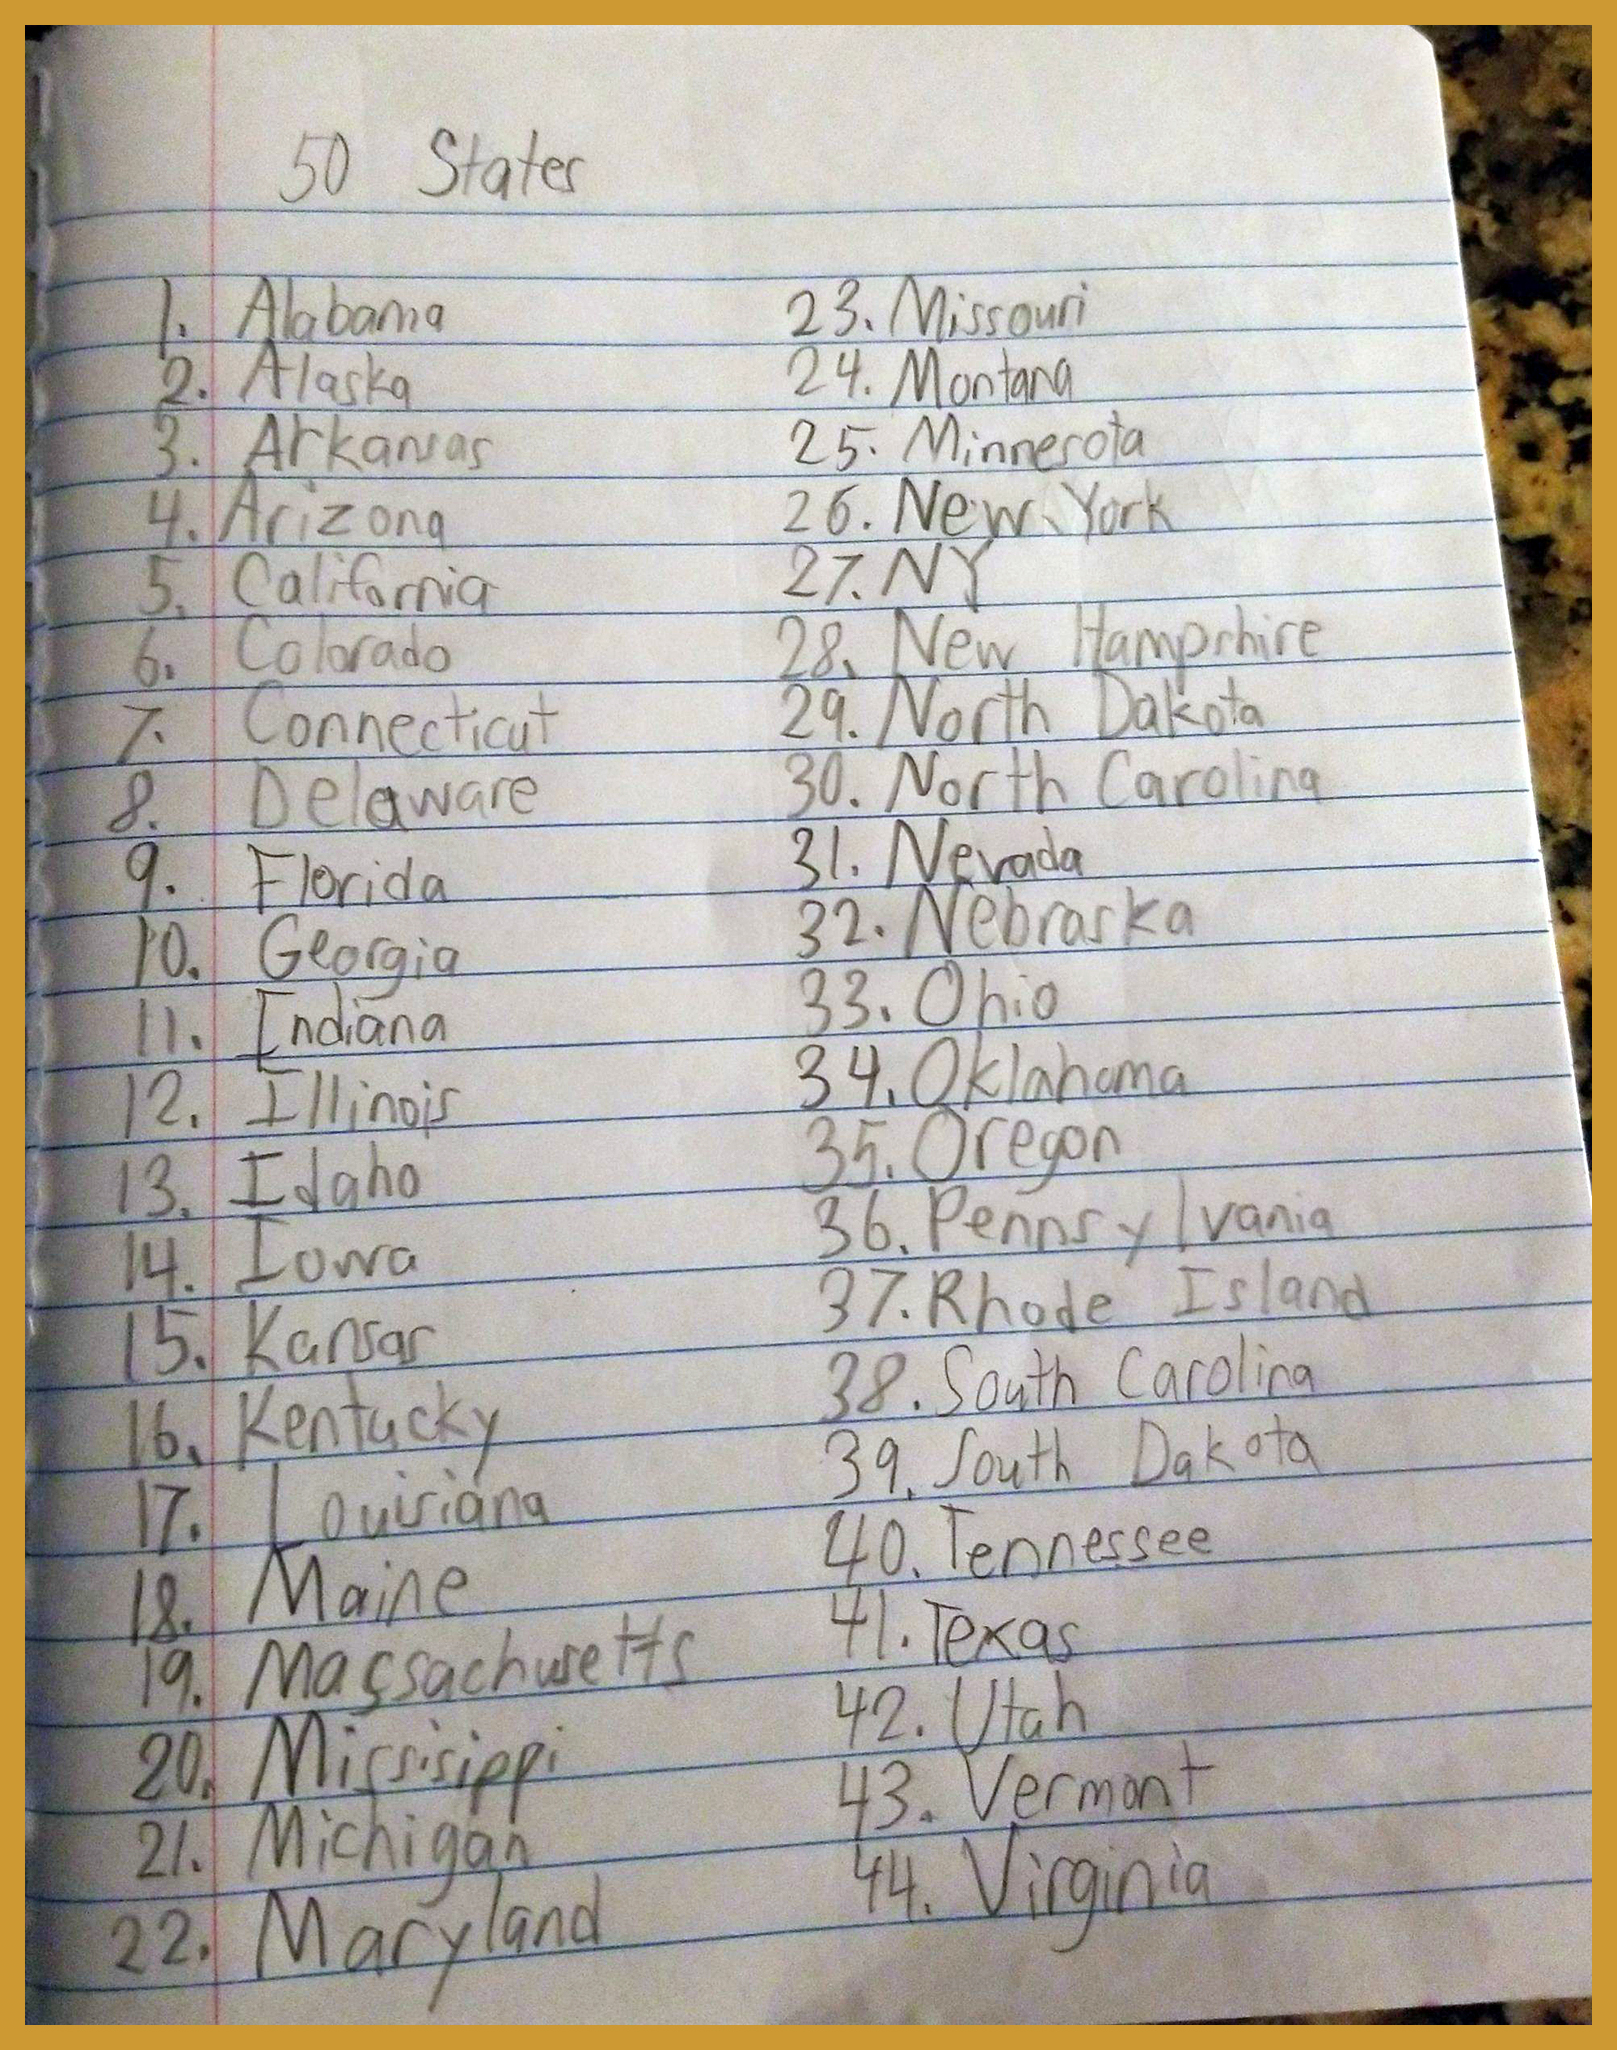 50 States
1. Alabama
2. Alaska
3. Arkansas
4. Arizona
5. California
6. Colorado
7. Connecticut
8. Delaware
9. Florida
10. Georgia
11. Indiana
12. Illinois
13. Idaho
14. Iowa
15. Kansas
16. Kentucky
17. Louisiana
18. Maine
19. Massachusetts
20. Missisippi
21. Michigan
22. Maryland
23. Missouri
24. Montana
25. Minnesota
26. New York
27. NY
28. New Hampshire
29. North Dakota
30. North Carolina
31. Nevada
32. Nebraska
33. Ohio
34. Oklahoma
35. Oregon
36. Pennsylvania
37. Rhode Island
38. South Carolina
39. South Dakota
40. Tennessee
41. Texas
42. Utah
43. Vermont
44. Virginia